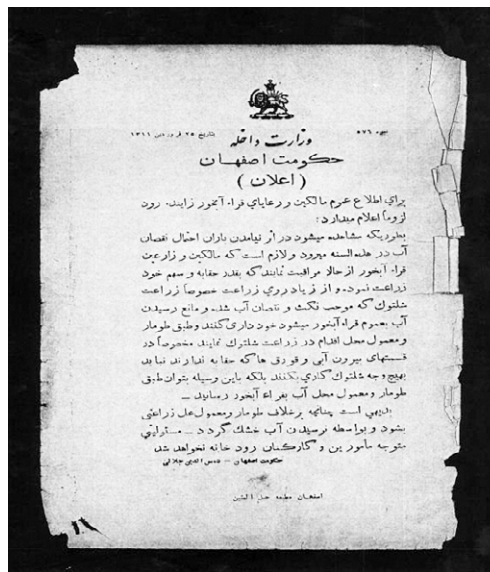 نمره ۵۷۶
بتاریخ ۲۵ فروردین ۱۳۱۱
وزارت داخله
حکومت اصفهان
(اعلان)
برای اطلاع عموم مالکین و رعایای قراء آبخور زاینده رود
لزوماً اعلام میدارد:
بطوریکه مشاهده میشود در اثر نیامدن باران احتمال نقصان
آب در هذه السنه میرود و لازم است که مالکین و زارعین
قراء آبخور از حالا مراقبت نمایند که بقدر حقابه و سهم خود
زراعت نموده و از زیاد روی زراعت خصوصاً زراعت
شلتوک که موجب نکث و نقصان آب شده و مانع رسیدن
آب بعموم قراء آبخور میشود خود داری کنند و طبق طومار
و معمول محل اقدام در زراعت شلتوک نمایند مخصوصاً در
قسمتهای بیرون آبی و قورق ها که حقابه ندارند نباید
بهیچوجه شلتوک کاری بکنند بلکه باین وسیله بتوان طبق
طومار و معمول محل آب بقراء آبخور رسانید ـ
بدیهی است چنانچه برخلاف طومار و معمول محل زراعتی
بشود و بواسطه نرسیدن آب خشک گردد ـ مسئولیتی
متوجه مأمورین و کارکنان رود خانه نخواهد شد
حکومت اصفهان ـ شمس الدین جلالی
اصفهان مطبعه حبل المتین